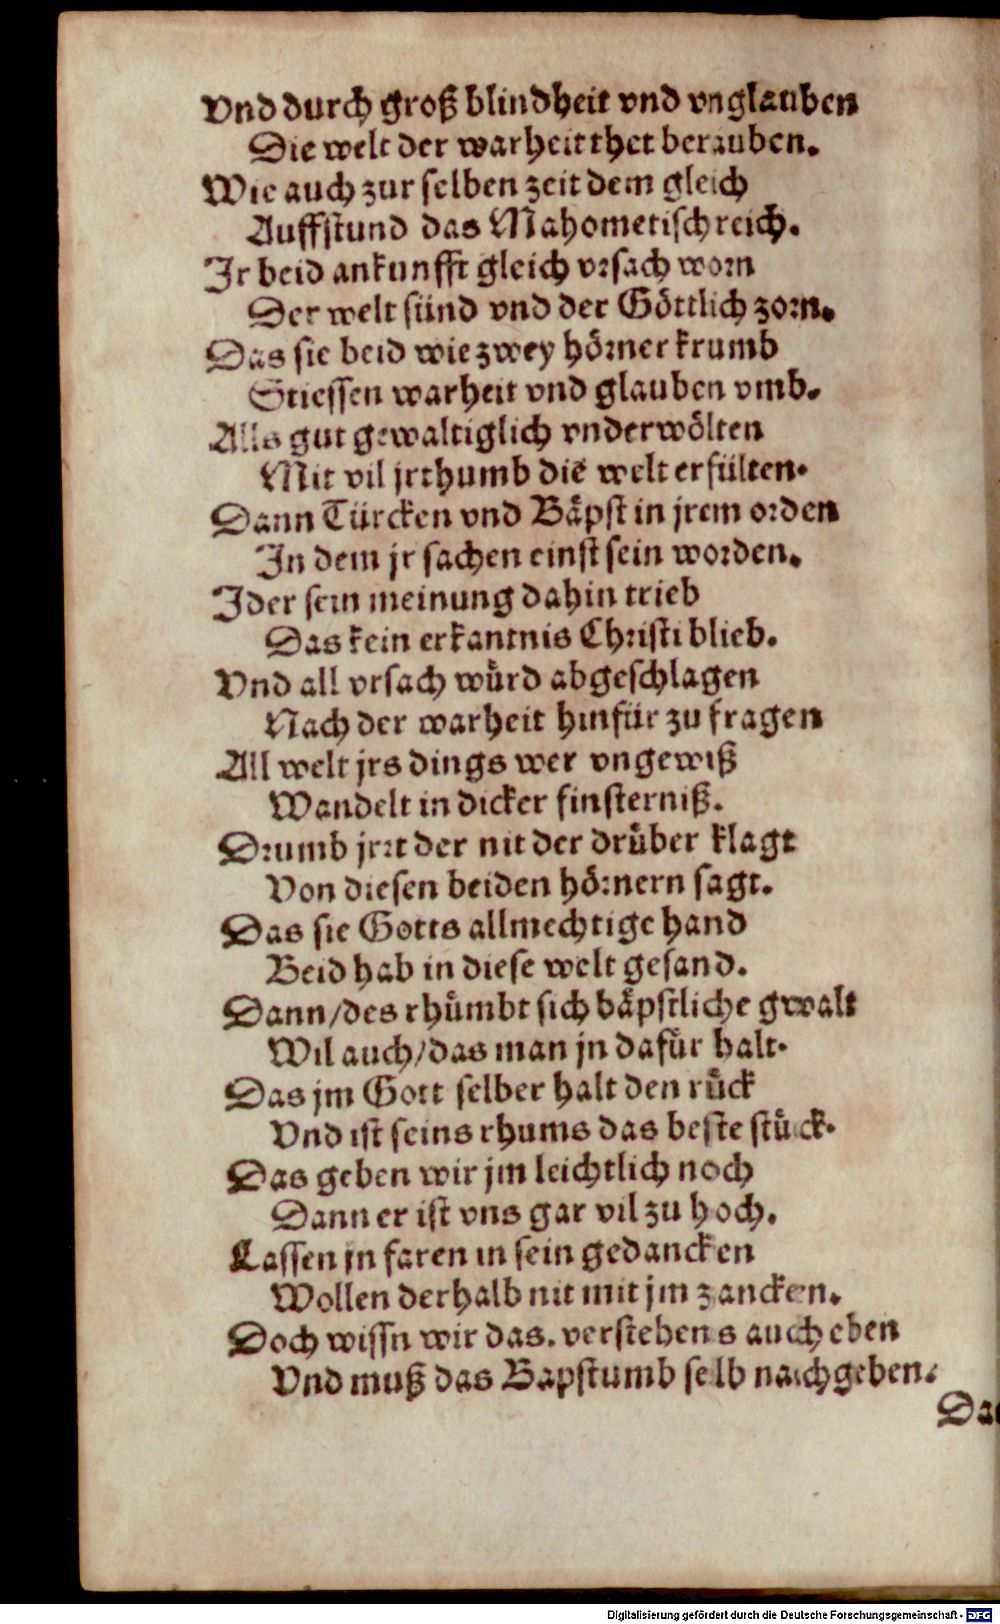 Vnd durch groß blindheit vnd vnglauben
Die welt der warheit thet berauben.
Wie auch zur selben zeit dem gleich
Auffstund das Mahometisch reich.
Ir beid ankunfft gleich vrsach worn
Der welt sünd vnd der Göttlich zorn.
Das sie beid wie zwey hörner krumb
Stiessen warheit vnd glauben vmb.
Alls gut gewaltiglich vnderwölten
Mit vil jrthumb die welt erfülten.
Dann Türcken vnd Bäpst in jrem orden
In dem jr sachen einst sein worden.
Ider sein meinung dahin trieb
Das kein erkantnis Christi blieb.
Vnd all vrsach würd abgeschlagen
Nach der warheit hinfür zu fragen
All welt jrs dings wer vngewiß
Wandelt in dicker finsterniß.
Drumb jrrt der nit der drüber klagt
Von diesen beiden hörnern sagt.
Das sie Gotts allmechtige hand
Beid hab in diese welt gesand.
Dann/des rhümbt sich bäpstliche gwalt
Wil auch/das man jn dafür halt.
Das jm Gott selber halt den rück
Vnd ist seins rhums das beste stück.
Das geben wir jm leichtlich noch
Dann er ist vns gar vil zu hoch.
Lassen jn faren in sein gedancken
Wollen derhalb nit mit jm zancken.
Doch wissn wir das. verstehens auch eben
Vnd muß das Bapstumb selb nachgeben.
Digitalisierung gefördert durch die Deutsche Forschungsgemeinschaft - DFG